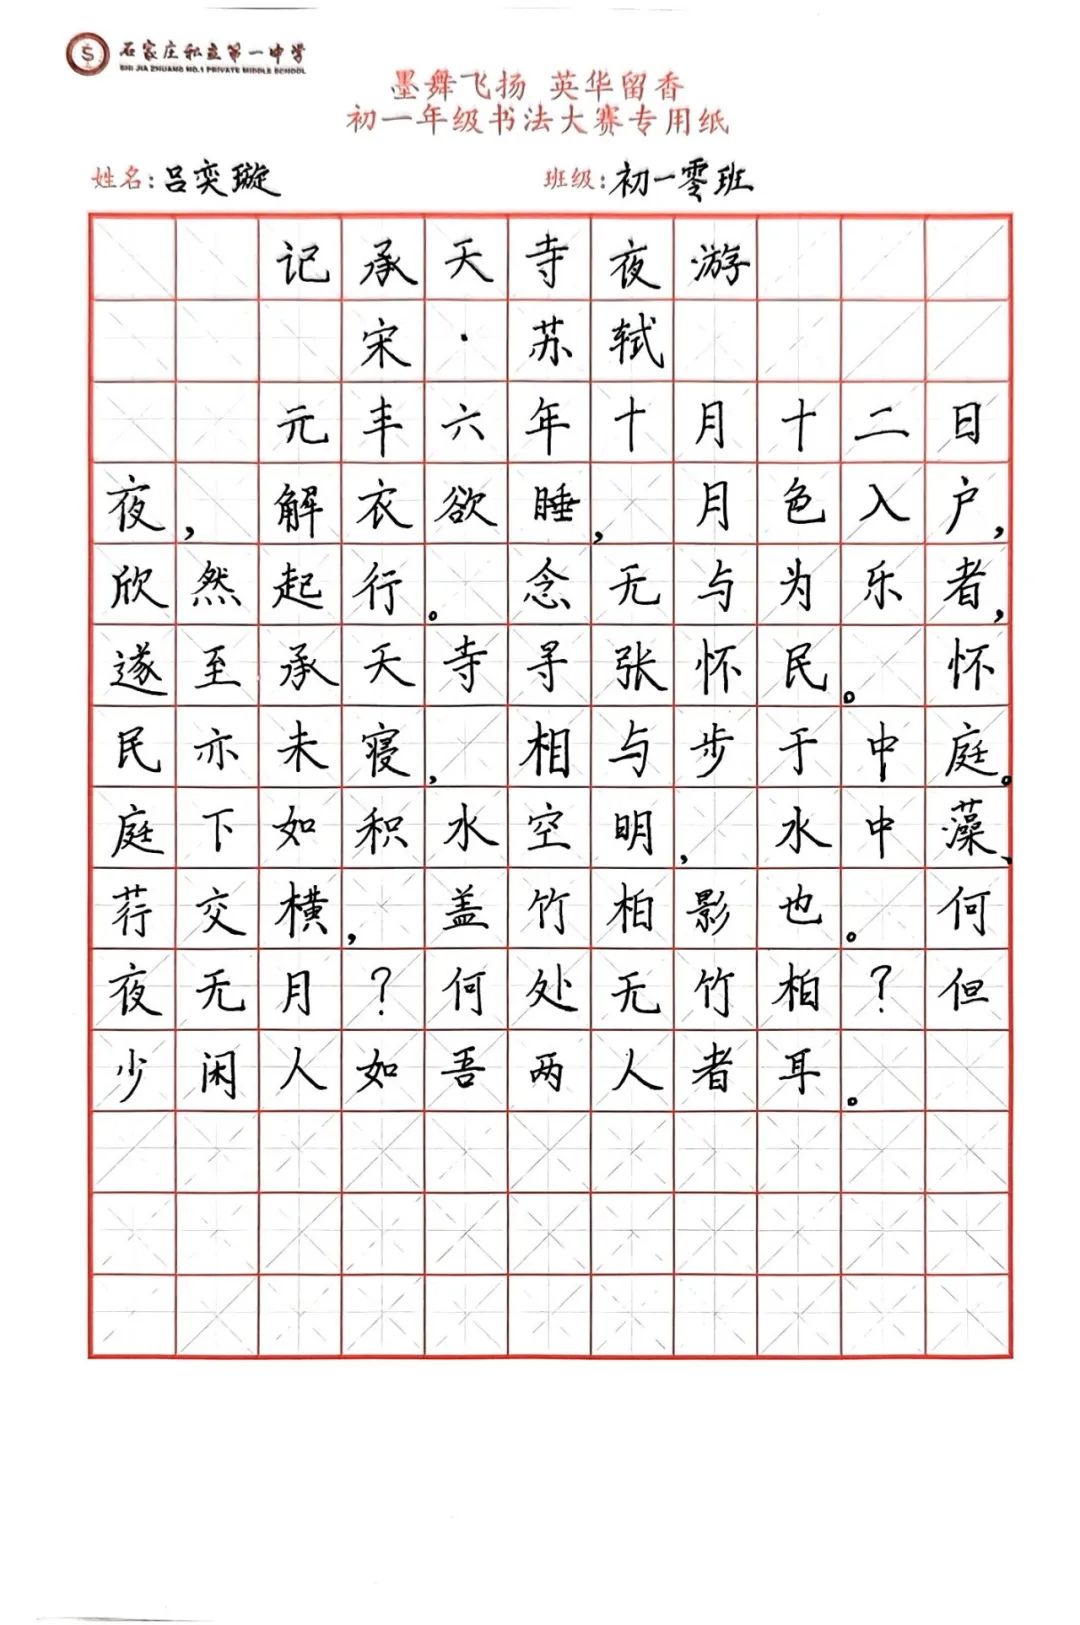 石家庄私立第一中学
SHI JIA ZHUANG NO.1 PRIVATE MIDDLE SCHOOL
墨舞飞扬 英华留香
初一年级书法大赛专用纸
姓名：吕奕璇 班级：初一零班
记承天寺夜游
宋·苏轼
元丰六年十月十二日
夜，解衣欲睡，月色入户，
欣然起行。念无与为乐者，
遂至承天寺寻张怀民。怀
民亦未寝，相与步于中庭。
庭下如积水空明，水中藻、
荇交横，盖竹柏影也。何
夜无月？何处无竹柏？但
少闲人如吾两人者耳。